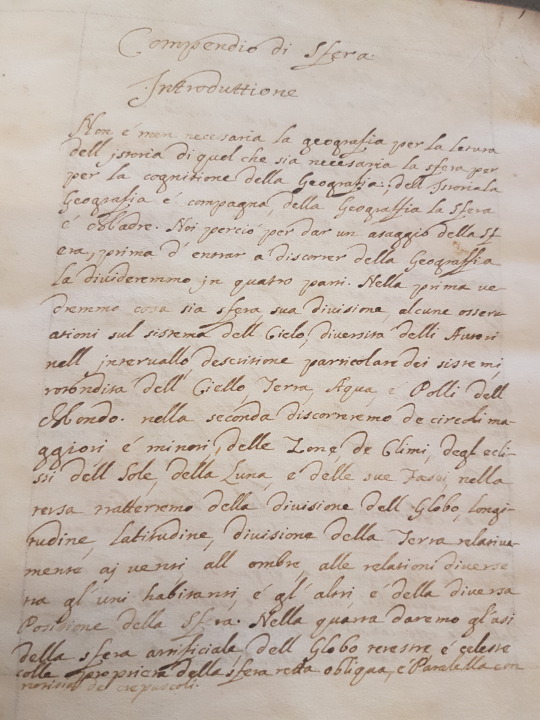 Compendio di Sfera.
Introduttione
Non é men necesaria la geografia per la letura
dell jstoria di quel che sia necesaria la sfera per
per la cognitione della Geografia; dell Istoria la
Geografia é compagna, della Geografia la Sfera
é Madre. Noi perció per dar un asaggio della Sf
era, prima d' entrar a discorrer della Geografia
la divideremmo jn quatro parti. Nella prima ve
dremmo cosa sia sfera sua divisione, alcune osserv
ationi sul sistema dell Cielo, diversita delli Autori
nell jntervallo, descritione particolare dei sistemi
rotondita dell' Ciello, Terra, Aqua, e Polli dell
Mondo. nella seconda discorreremo de circoli ma
ggiori é minori, delle Zone, de Climi, degl' ecli
ssi dell Sole, della Luna e delle sue Fasi, nella
tersa tratteremo della divisione dell Globo, Longi
tudine, Latitudine, divisione della Terra relativa
mente aj venti all ombre, alle relationi diverse
tra gl' uni habitanti, é gl' altri é della diversa
Positione della Sfera. Nella quarta daremo gl' usi
della sfera artificiale, dell Globo terestre é celeste
colle proprieta della sfera retta obliqua, é Paralella con
de crepuscoli.